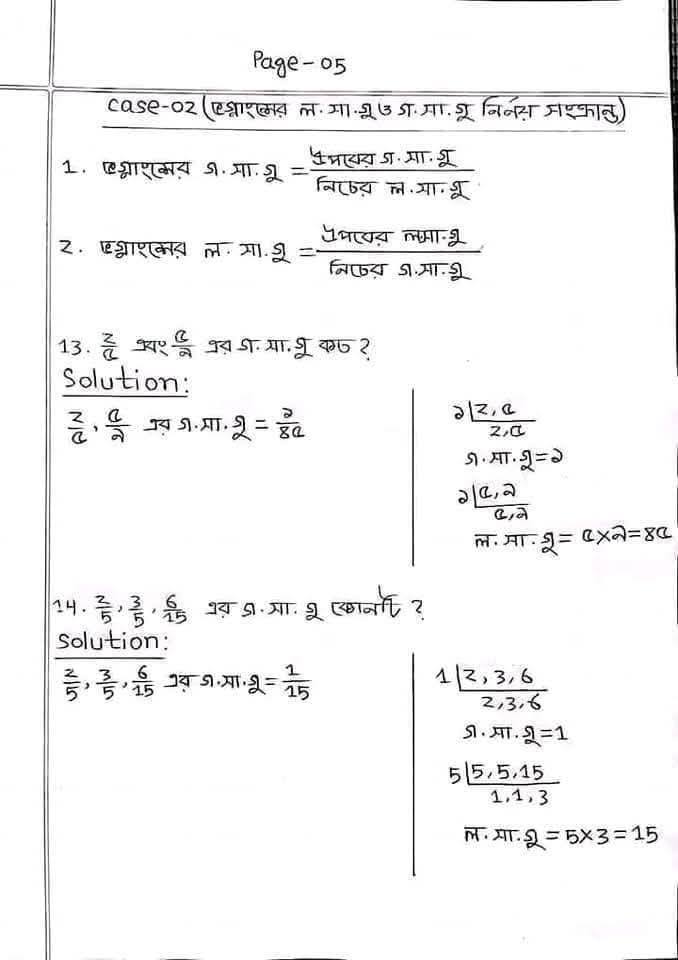 Page-05
Case-02 (ভগ্নাংশের ল.সা.গু ও গ.সা.গু নির্নয় সংক্রান্ত)
1. ভগ্নাংশের গ.সা.গু = উপরের গ.সা.গু / নিচের ল.সা.গু
2. ভগ্নাংশের ল.সা.গু = উপরের লসা.গু / নিচের গ.সা.গু
13. ২/৫ এবং ৫/৯ এর গ.সা.গু কত?
Solution:
২/৫, ৫/৯ এর গ.সা.গু = ১/৪৫
১|২,৫
২,৫
গ.সা.গু=১
১|৫,৯
৫,৯
ল.সা.গু= ৫×৯=৪৫
14. 2/5, 3/5, 6/15 এর গ.সা.গু কোনটি?
Solution:
2/5, 3/5, 6/15 এর গ.সা.গু = 1/15
1|2,3,6
2,3,6
গ.সা.গু=1
5|5,5,15
1,1,3
ল.সা.গু=5×3=15